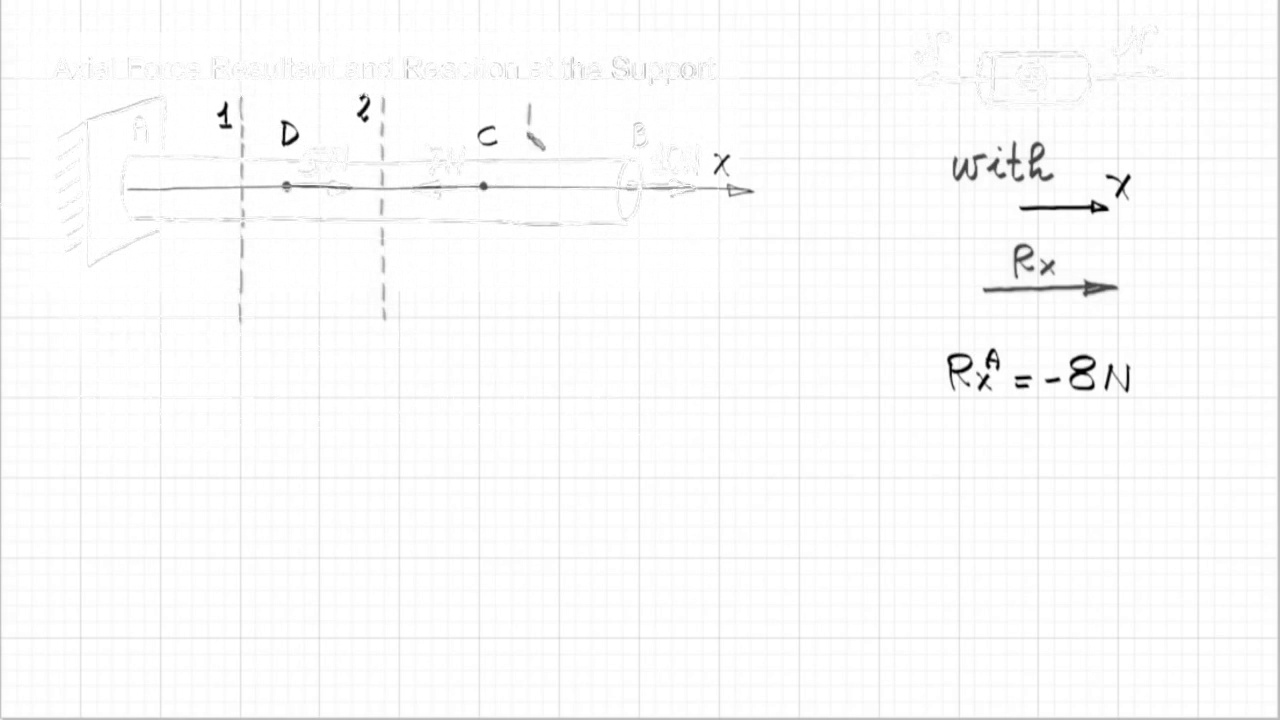 Axial Force Resultant and Reaction at the Support
A 1 D 2 C B x
5N 7N 10N
N N
with
x
Rx
RxA = -8N